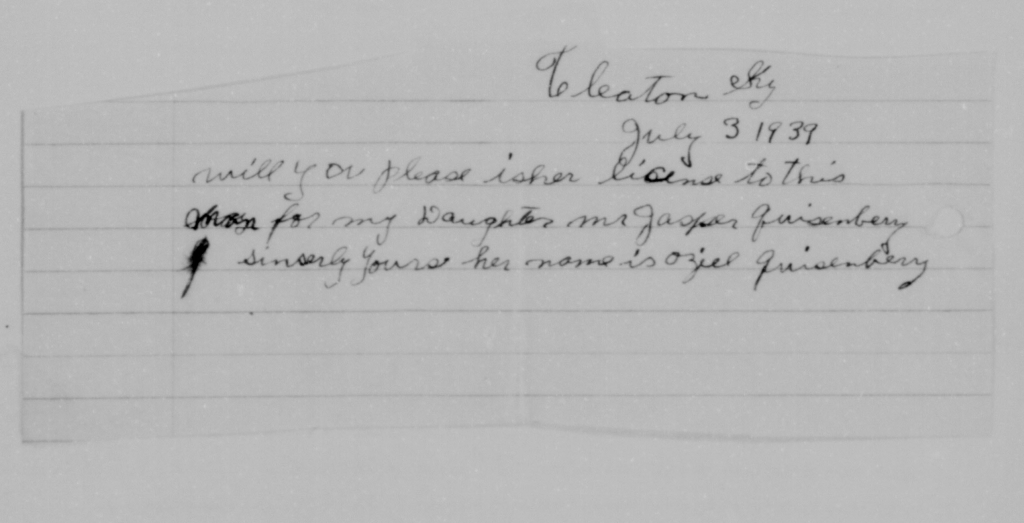 Cleaton Ky
July 3 1939
will you please isher license to this
man for my Daughter mr Jasper Quisenberry
sincerly yours her name is oziel Quisenberry